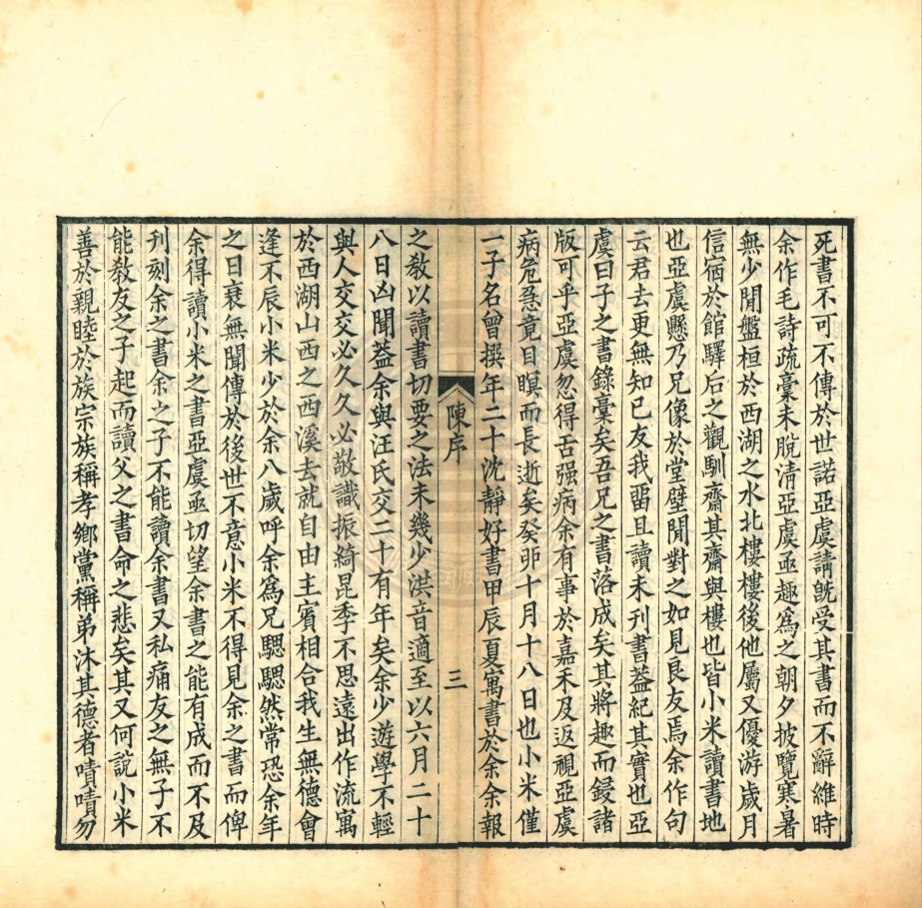 死書不可不傳於世諾亞虞請旣受其書而不辭維時
余作毛詩疏稾未脫淸亞虞亟趣爲之朝夕披覽寒暑
無少閒盤桓於西湖之水北樓樓後他屬又優游歲月
信宿於館驛后之觀馴齋其齋與樓也皆小米讀書地
也亞虞懸乃兄像於堂壁閒對之如見良友焉余作句
云君去更無知已友我畱且讀未刊書葢紀其實也亞
虞曰子之書錄稾矣吾兄之書落成矣其將趣而鋟諸
版可乎亞虞忽得舌强病余有事於嘉禾及返視亞虞
病危急竟目瞑而長逝矣癸卯十月十八日也小米僅
一子名曾撰年二十沈靜好書甲辰夏寓書於余余報
陳序
三
之敎以讀書切要之法未幾少洪音適至以六月二十
八日凶聞葢余與汪氏交二十有年矣余少遊學不輕
與人交交必久久必敬識振綺昆季不思遠出作流寓
於西湖山西之西溪去就自由主賓相合我生無德會
逢不辰小米少於余八歲呼余爲兄騦騦然常恐余年
之日衰無聞傳於後世不意小米不得見余之書而俾
余得讀小米之書亞虞亟切望余書之能有成而不及
刊刻余之書余之子不能讀余書又私痛友之無子不
能敎友之子起而讀父之書命之悲矣其又何說小米
善於親睦於族宗族稱孝鄉黨稱弟沐其德者嘖嘖勿